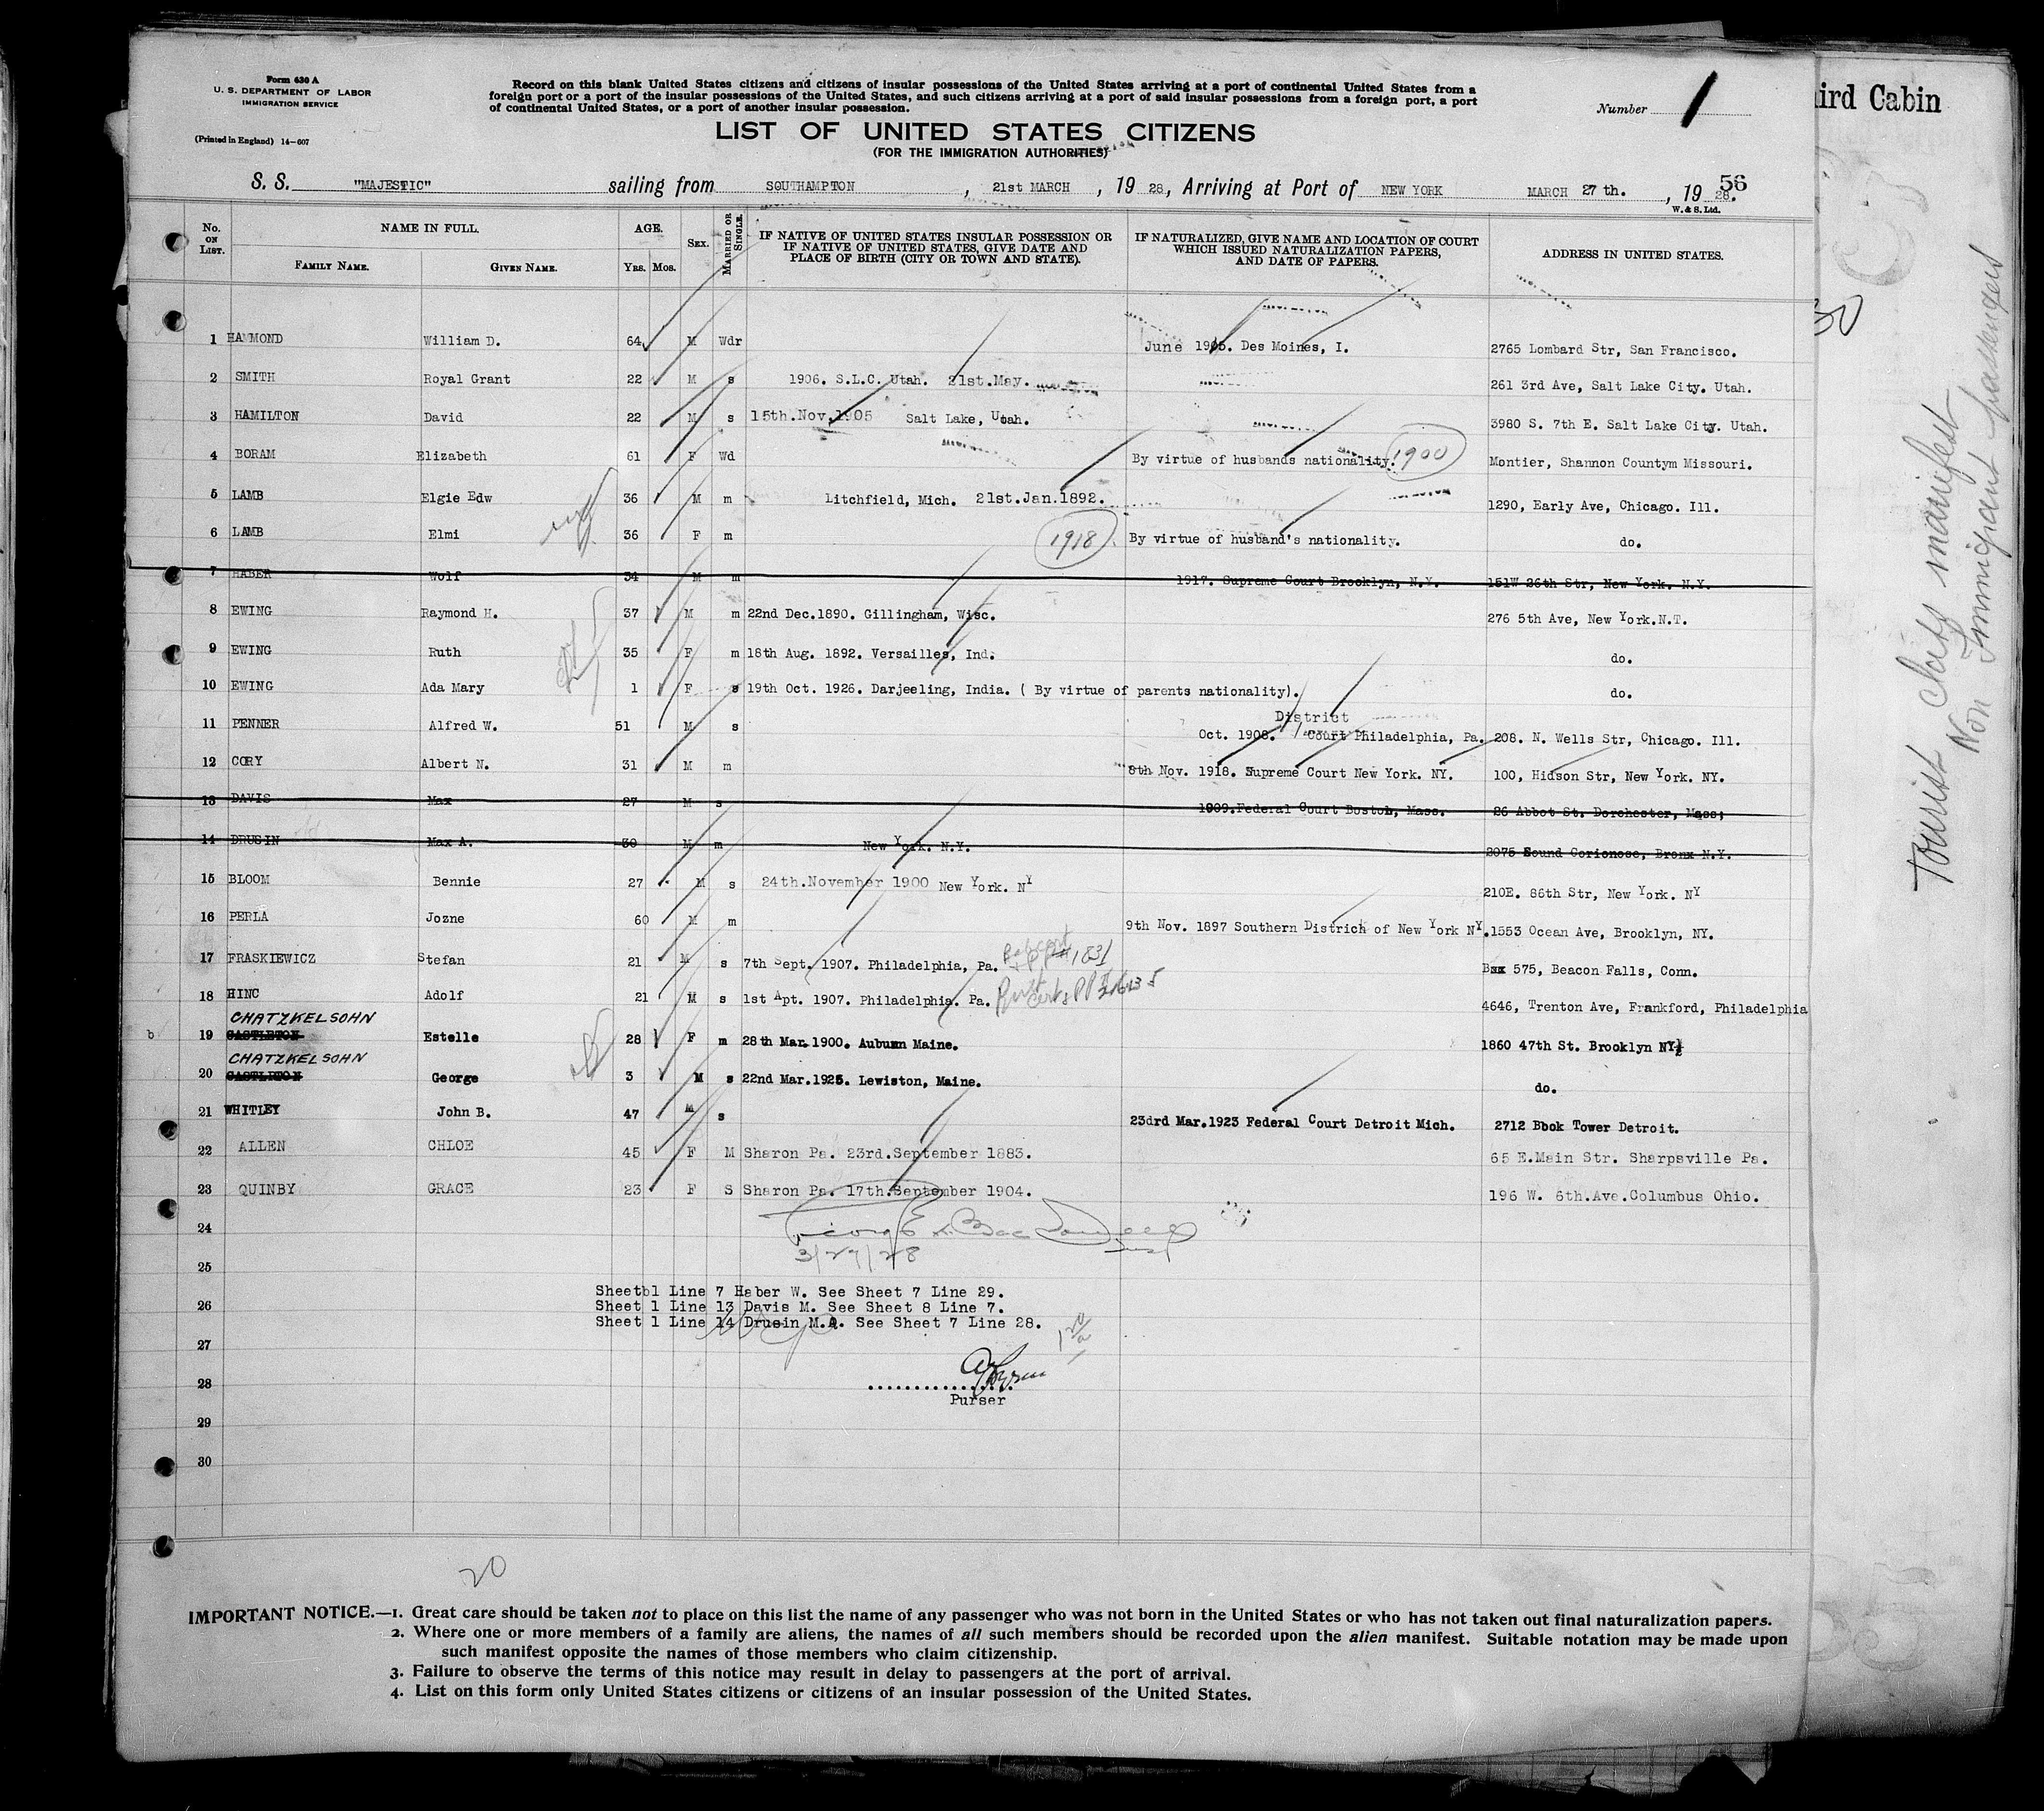 Form 630 A
U. S. DEPARTMENT OF LABOR
IMMIGRATION SERVICE
(Printed in England) 14-607
Record on this blank United States citizens and citizens of insular possessions of the United States arriving at a port of continental United States from a
foreign port or a port of the insular possessions of the United States, and such citizens arriving at a port of said insular possessions from a foreign port, a port
of continental United States, or a port of another insular possession.
Number 1
LIST OF UNITED STATES CITIZENS
(FOR THE IMMIGRATION AUTHORITIES)
S. S. "MAJESTIC" sailing from SOUTHAMPTON, 21st MARCH, 19 28, Arriving at Port of NEW YORK MARCH 27 th., 19 28.
56
W. & S. Ltd.
No. ON LIST. NAME IN FULL. FAMILY NAME. GIVEN NAME. AGE. YRS. MOS. SEX. MARRIED OR SINGLE. IF NATIVE OF UNITED STATES INSULAR POSSESSION OR IF NATIVE OF UNITED STATES, GIVE DATE AND PLACE OF BIRTH (CITY OR TOWN AND STATE). IF NATURALIZED, GIVE NAME AND LOCATION OF COURT WHICH ISSUED NATURALIZATION PAPERS, AND DATE OF PAPERS. ADDRESS IN UNITED STATES.
1 HAMMOND William D. 64 M Wdr June 1905. Des Moines, I. 2765 Lombard Str, San Francisco.
2 SMITH Royal Grant 22 M s 1906. S.L.C. Utah. 21st.May. 261 3rd Ave, Salt Lake City. Utah.
3 HAMILTON David 22 M s 15th.Nov.1905 Salt Lake, Utah. 3980 S. 7th E. Salt Lake City. Utah.
4 BORAM Elizabeth 61 F Wd By virtue of husbands nationality. 1900 Montier, Shannon Countym Missouri.
5 LAMB Elgie Edw 36 M m Litchfield, Mich. 21st.Jan.1892. 1290, Early Ave, Chicago. Ill.
6 LAMB Elmi 36 F m 1918 By virtue of husband's nationality. do.
7 HABER Wolf 34 M m 1917. Supreme Court Brooklyn, N.Y. 151W 26th Str, New York. N.Y.
8 EWING Raymond H. 37 M m 22nd Dec.1890. Gillingham, Wisc. 276 5th Ave, New York.N.T.
9 EWING Ruth 35 F m 18th Aug. 1892. Versailles, Ind. do.
10 EWING Ada Mary 1 F s 19th Oct. 1926. Darjeeling, India. ( By virtue of parents nationality). do.
11 PENNER Alfred W. 51 M s Oct. 1908. District Court Philadelphia, Pa. 208. N. Wells Str, Chicago. Ill.
12 CORY Albert N. 31 M m 8th Nov. 1918. Supreme Court New York. NY. 100, Hidson Str, New York. NY.
13 DAVIS Max 27 M s 1909.Federal Court Boston, Mass. 26 Abbot St. Dorchester, Mass;
14 DRUSIN Max A. 30 M m New York. N.Y. 2075 Sound Corionose, Bronx N.Y.
15 BLOOM Bennie 27 M s 24th.November 1900 New York. NY 210E. 86th Str, New York. NY
16 PERLA Jozne 60 M m 9th Nov. 1897 Southern District of New York NY. 1553 Ocean Ave, Brooklyn, NY.
17 FRASKIEWICZ Stefan 21 M s 7th Sept. 1907. Philadelphia, Pa. Box 575, Beacon Falls, Conn.
18 HINC Adolf 21 M s 1st Apt. 1907. Philadelphia. Pa. 4646, Trenton Ave, Frankford, Philadelphia
CHATZKELSOHN
19 CASTLETON Estelle 28 F m 28th Mar.1900. Auburn Maine. 1860 47th St. Brooklyn NY.
CHATZKELSOHN
20 CASTLETON George 3 M s 22nd Mar.1925. Lewiston, Maine. do.
21 WHITLEY John B. 47 M s 23drd Mar.1923 Federal Court Detroit Mich. 2712 Book Tower Detroit.
22 ALLEN CHLOE 45 F M Sharon Pa. 23rd.September 1883. 65 E.Main Str. Sharpsville Pa.
23 QUINBY GRACE 23 F S Sharon Pa. 17th.September 1904. 196 W. 6th.Ave.Columbus Ohio.
24
3/27/28
25
Sheetbl Line 7 Haber W. See Sheet 7 Line 29.
26 Sheet 1 Line 13 Davis M. See Sheet 8 Line 7.
Sheet 1 Line 14 Drusin M.A. See Sheet 7 Line 28.
27
28
Purser
29
30
20
IMPORTANT NOTICE.—1. Great care should be taken not to place on this list the name of any passenger who was not born in the United States or who has not taken out final naturalization papers.
2. Where one or more members of a family are aliens, the names of all such members should be recorded upon the alien manifest. Suitable notation may be made upon
such manifest opposite the names of those members who claim citizenship.
3. Failure to observe the terms of this notice may result in delay to passengers at the port of arrival.
4. List on this form only United States citizens or citizens of an insular possession of the United States.
ird Cabin
30
Tourist Class manifest
Non Immigrant passengers